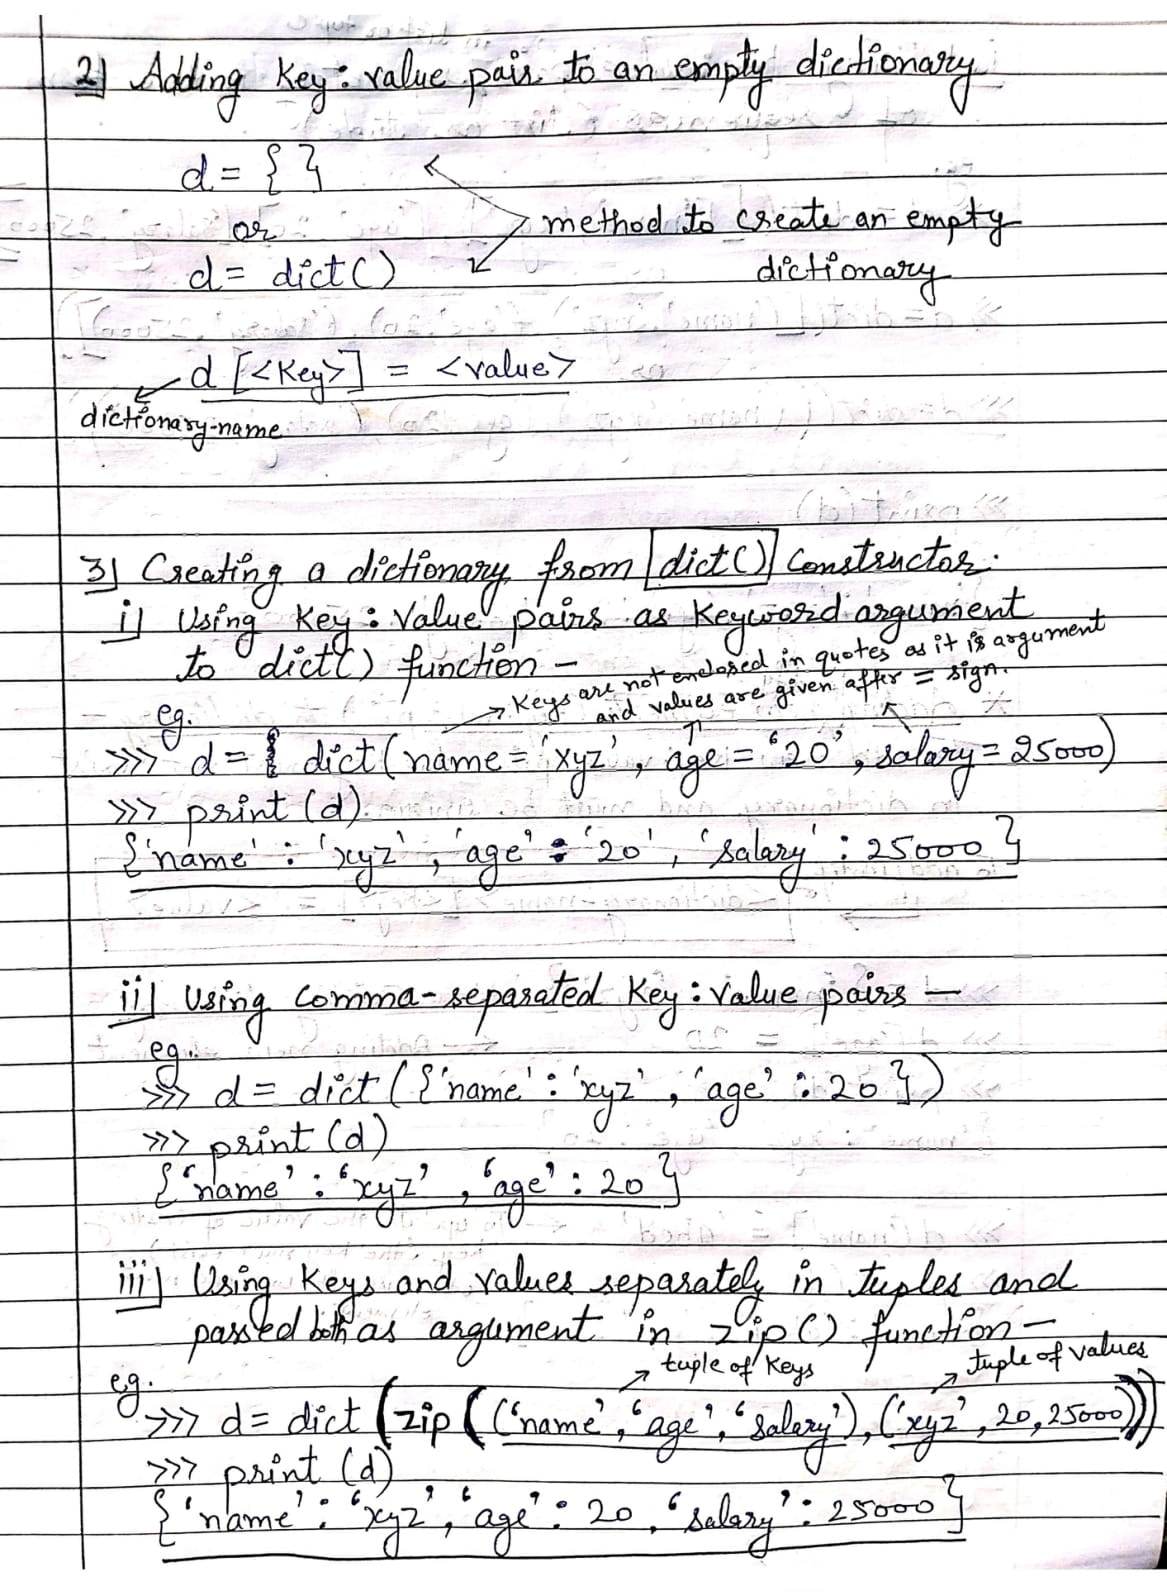 2) Adding Key : value pair to an empty dictionary
d = { }
or
method to create an empty
d = dict()
dictionary
d [<Key>] = <value>
dictionary-name
3) Creating a dictionary from dict() Constructor.
i) Using Key : Value pairs as Keyword argument
to dict() function –
→ Keys are not enclosed in quotes as it is argument
and values are given after = sign.
eg.
>>> d = dict(name = 'xyz', age = '20', salary = 25000)
>>> print (d).
{'name' : 'xyz', 'age' : '20', 'salary' : 25000}
ii) Using Comma-separated Key : Value pairs –
eg.
>>> d = dict ({'name' : 'xyz', 'age' : 20})
>>> print (d)
{'name' : 'xyz', 'age' : 20}
iii) Using Keys and values separately in tuples and
passed both as argument in zip() function –
→ tuple of Keys
→ tuple of values
eg.
>>> d = dict (zip (('name', 'age', 'salary'), ('xyz', 20, 25000)))
>>> print (d)
{'name' : 'xyz', 'age' : 20, 'salary' : 25000}